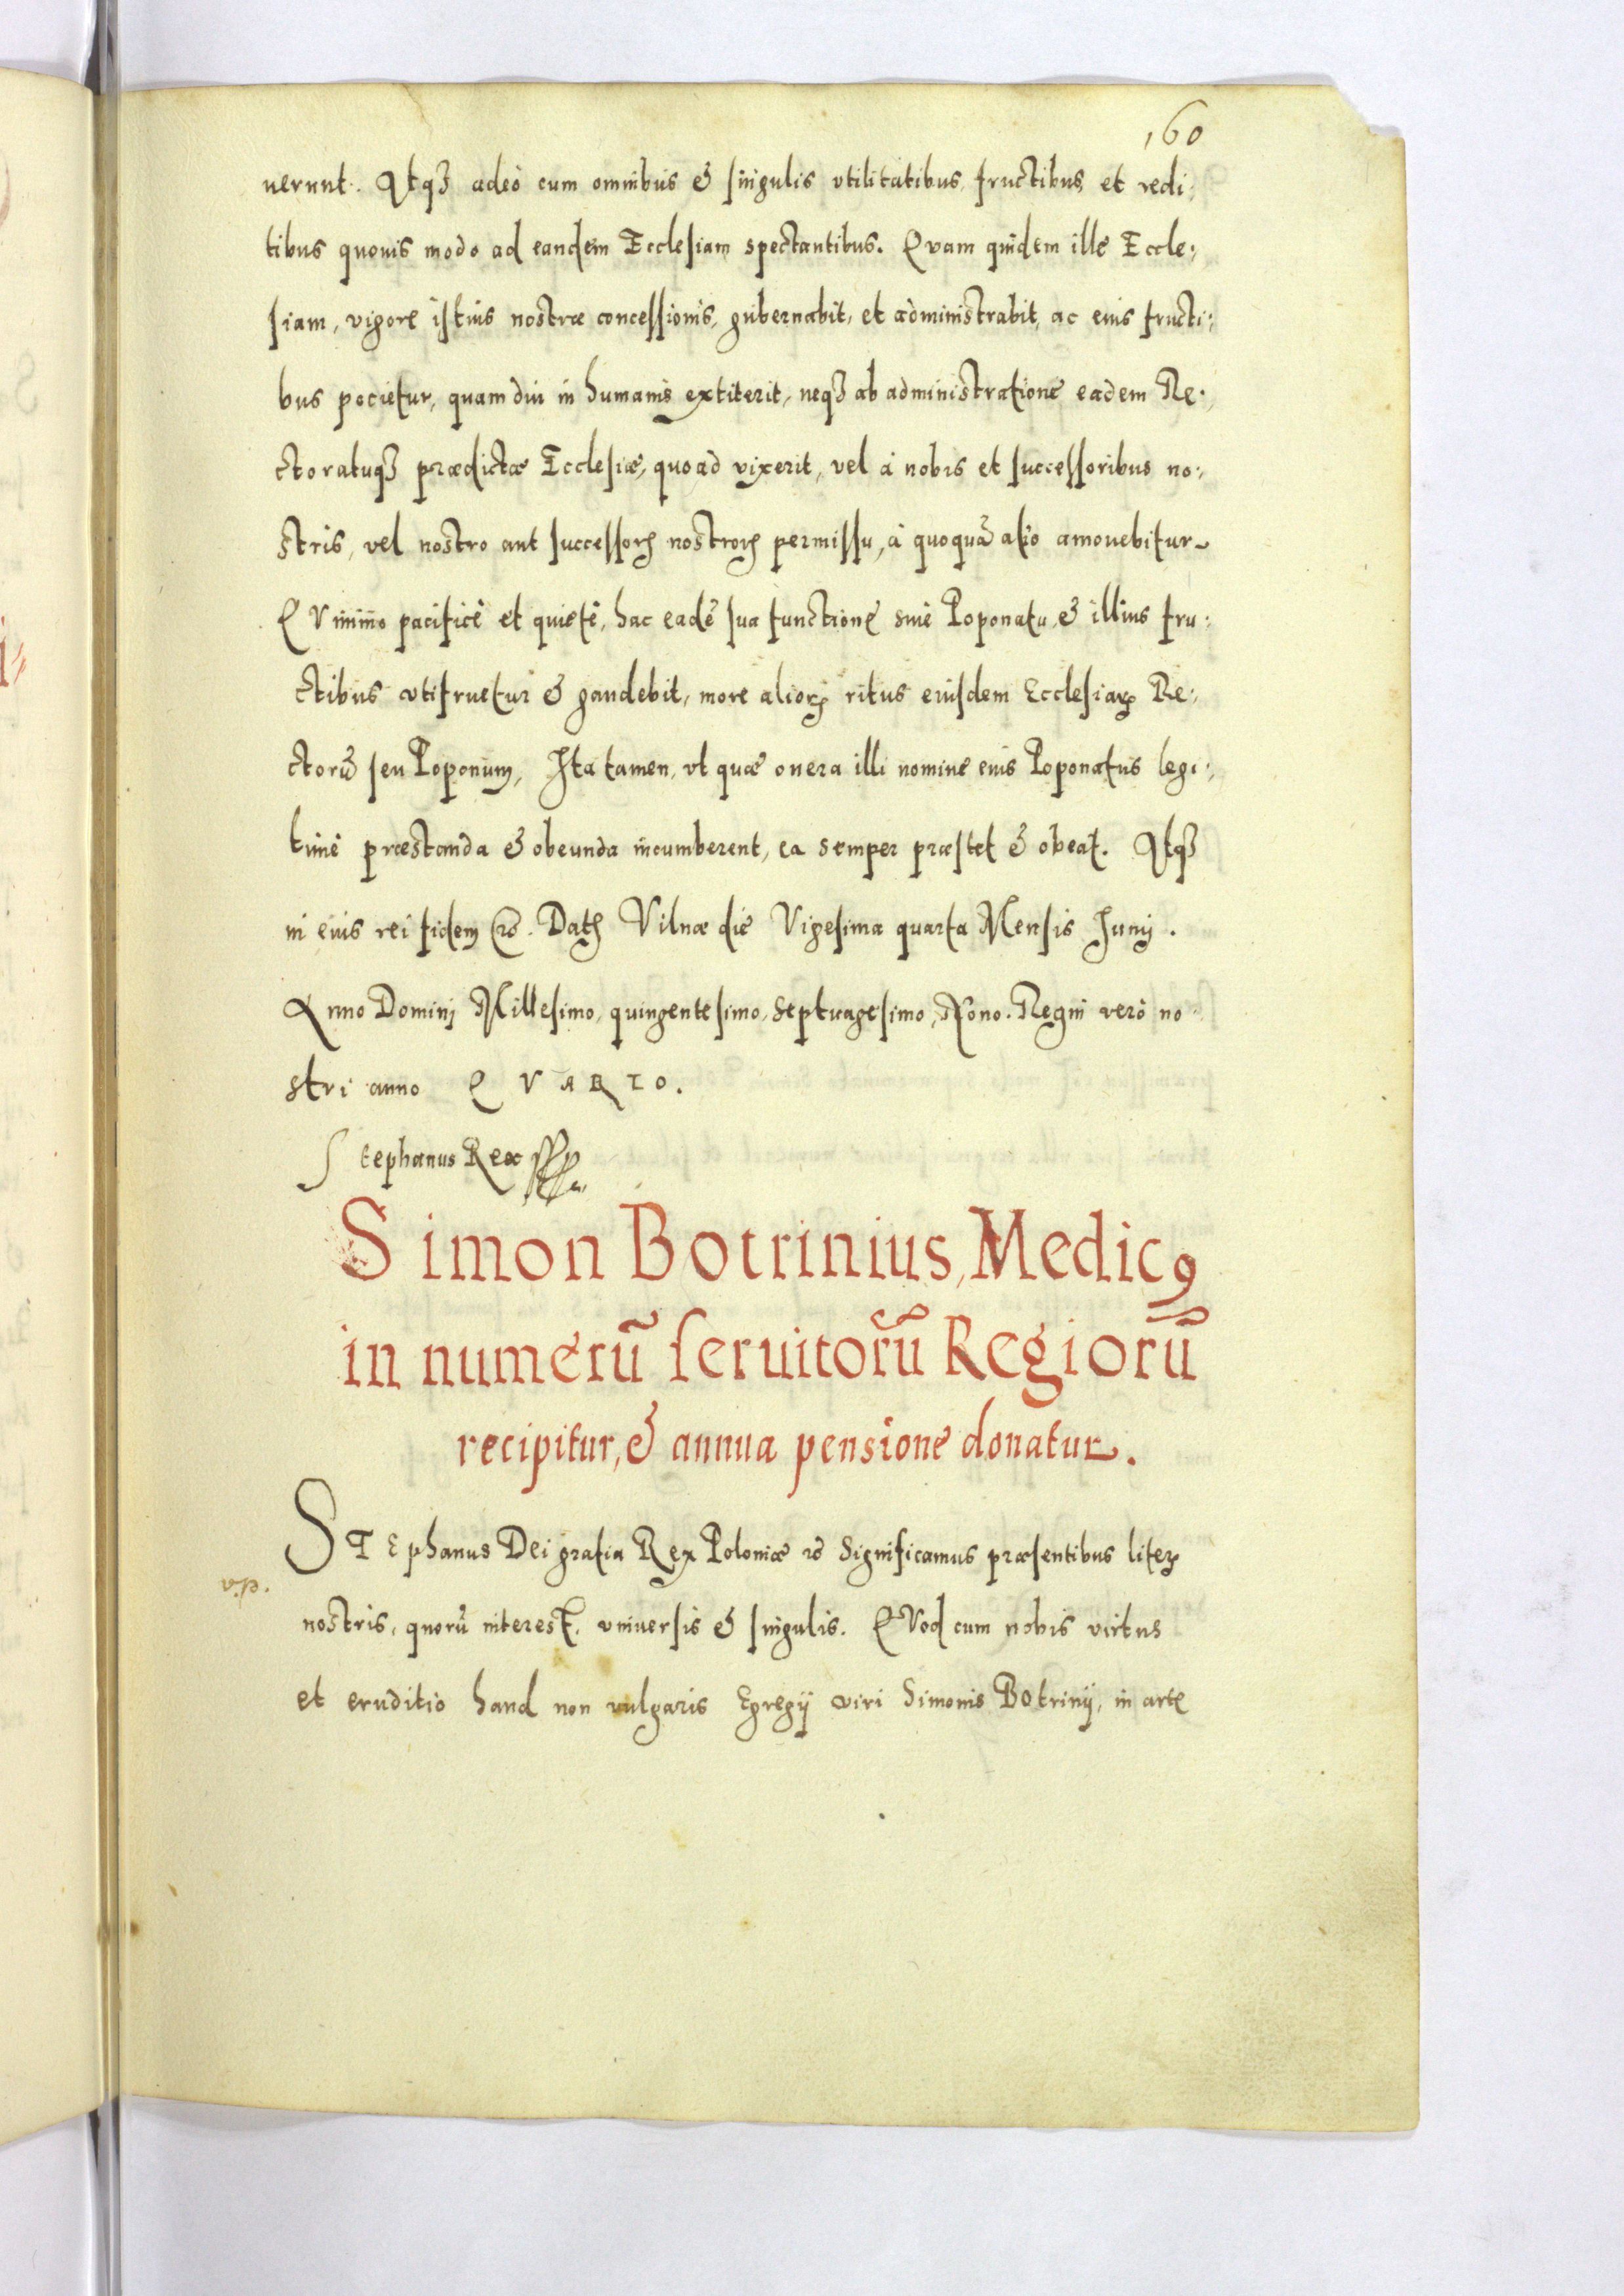 160
uerunt. Atqꝫ adeò cum omnibus & singulis vtilitatibus, fructibus et redi:
tibus quouis modo ad eandem Ecclesiam spectantibus. Quam quidem ille Eccle:
siam, vigore istius nostræ concessionis, gubernabit, et administrabit, ac eius fructi:
bus pocietur, quam diu in humanis extiterit, neqꝫ ab administratione eadem Re:
ctoratuqꝫ prædictæ Ecclesiæ, quoad vixerit, vel à nobis et successoribus no:
stris, vel nostro aut successorꝝ nostrorꝝ permissu, à quoquã alio amouebitur.
QVinimo pacificè et quietè, hac eadẽ sua functione siue Poponatu, & illius fru:
ctibus vtifruetur & gaudebit, more aliorꝝ ritus eiusdem Ecclesiarꝝ Re:
ctorũ seu Poponum, Ita tamen, vt quæ onera illi nomine eius Poponatus legi:
timè præstanda & obeunda incumberent, ea semper præstet & obeat. Atqꝫ
in eius rei fidem &c. Datꝫ Vilnæ die Vigesima quarta Mensis Junij.
Anno Domini Millesimo, quingentesimo, septuagesimo, Nono. Regni verò no
stri anno QVARTO.
Stephanus Rex
Simon Botrinius, Medicꝰ
in numerũ seruitorũ Regiorũ
recipitur, & annua pensione donatur.
STEphanus Dei gratia Rex Poloniæ &c Significamus præsentibus literꝭ
nostris, quorũ interest, vniuersis & singulis. QVod cum nobis virtus
et eruditio haud non vulgaris Egregij viri Simonis Botrinij, in arte